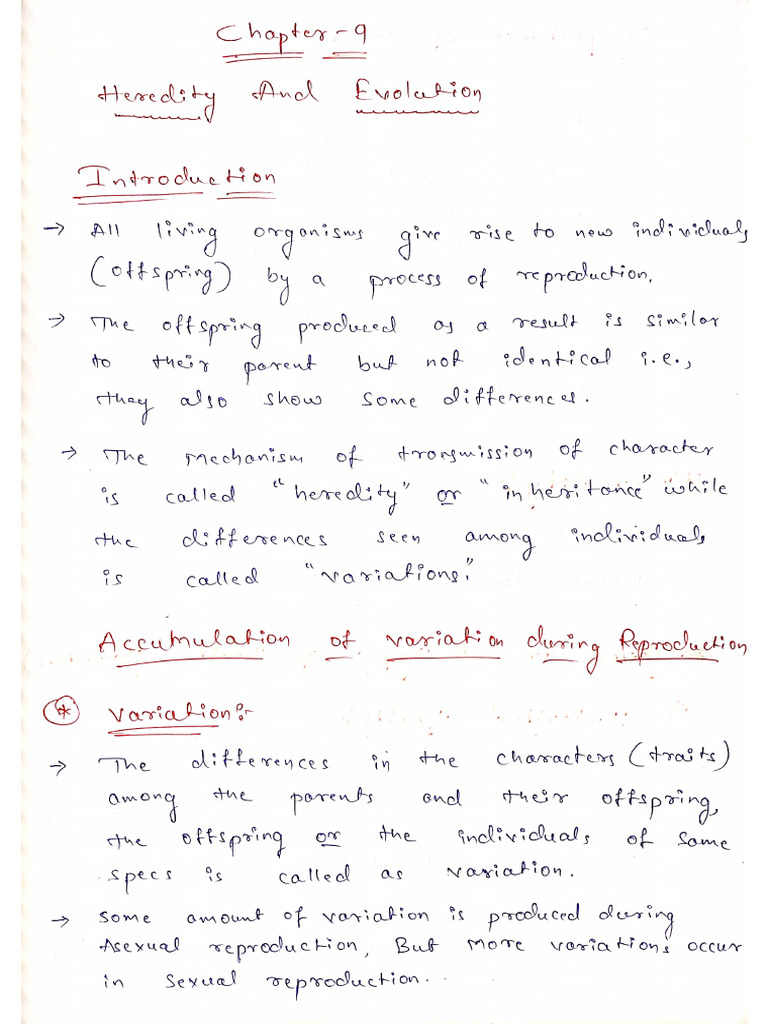 Chapter-9
Heredity And Evolution
Introduction
→ All living organisms give rise to new individuals
(offspring) by a process of reproduction.
→ The offspring produced as a result is similar
to their parent but not identical i.e.,
they also show some differences.
→ The mechanism of transmission of character
is called "heredity" or "inheritance" while
the differences seen among individuals
is called "variations."
Accumulation of variation during Reproduction
* Variation:-
→ The differences in the characters (traits)
among the parents and their offspring,
the offspring or the individuals of same
specs is called as variation.
→ Some amount of variation is produced during
Asexual reproduction, But more variations occur
in sexual reproduction.